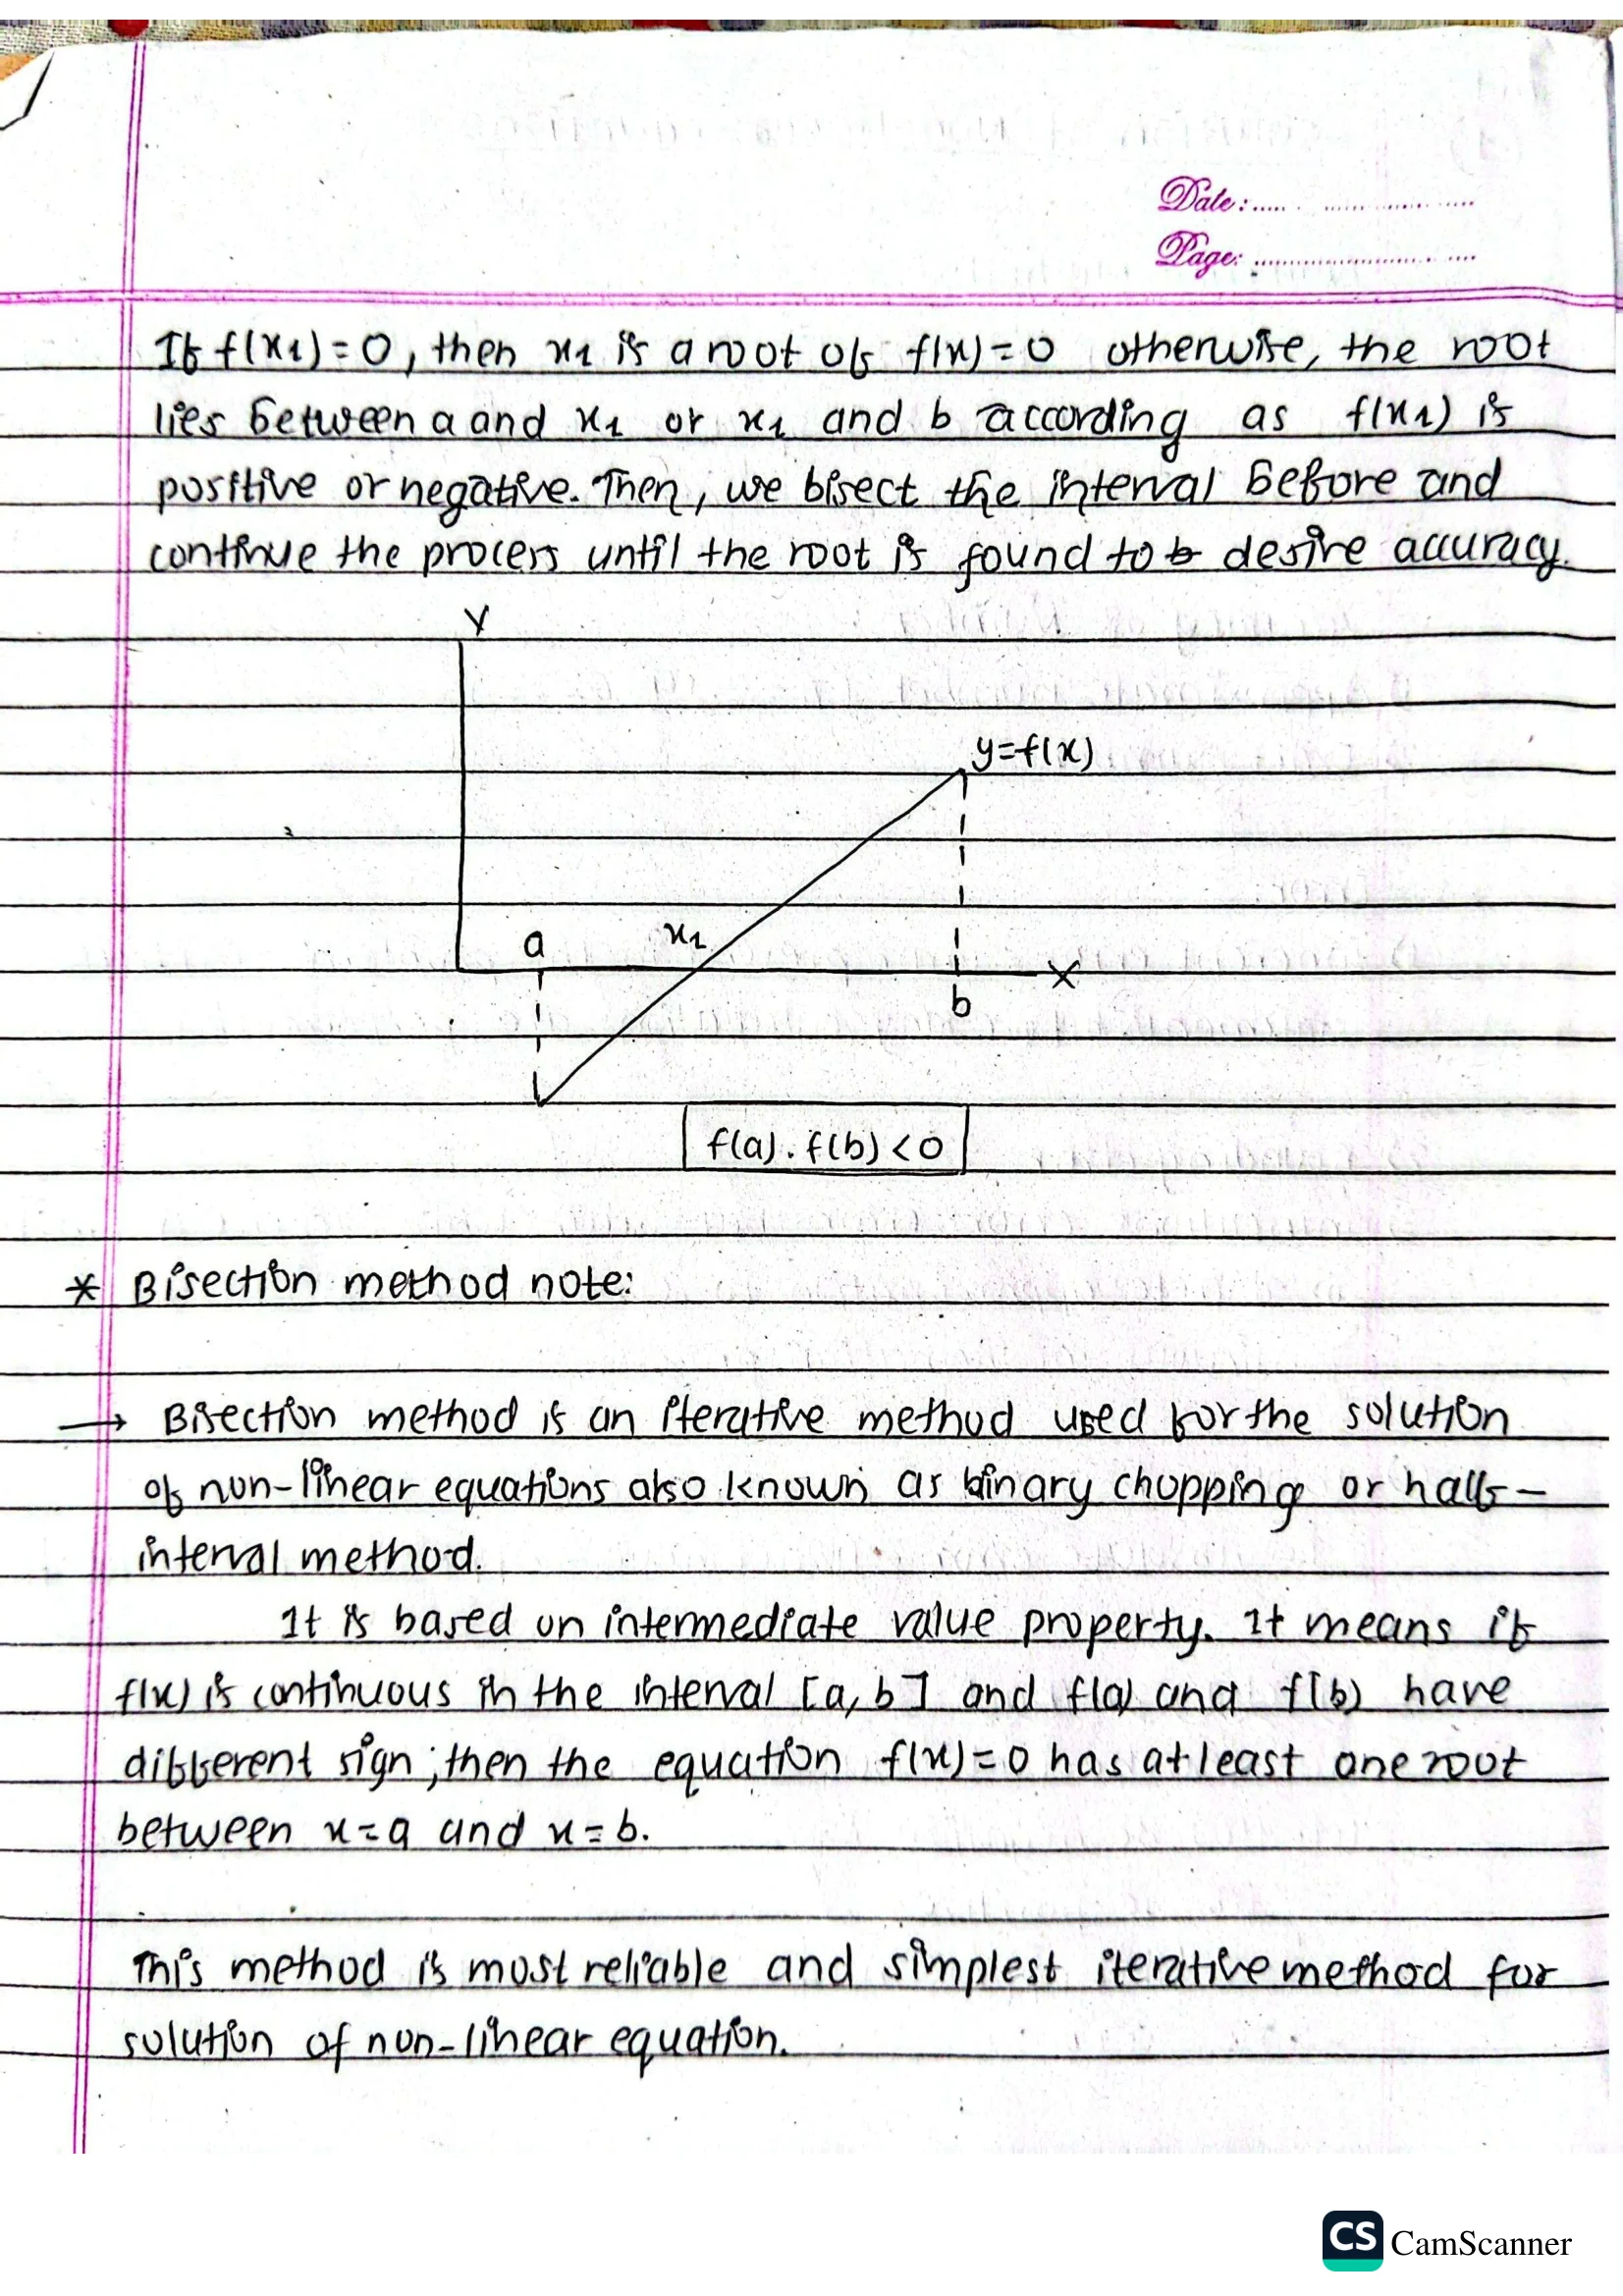 Date: ..... ....................
Page: ............................
If f(x1)=0, then x1 is a root of f(x)=0 otherwise, the root
lies between a and x1 or x1 and b according as f(x1) is
positive or negative. Then, we bisect the interval before and
continue the process until the root is found to desire accuracy.
Y
y=f(x)
a
x1
X
b
f(a).f(b)<0
* Bisection method note:
→ Bisection method is an iterative method used for the solution
of non-linear equations also known as binary chopping or half-
interval method.
It is based on intermediate value property. It means if
f(x) is continuous in the interval [a,b] and f(a) and f(b) have
different sign; then the equation f(x)=0 has atleast one root
between x=a and x=b.
This method is most reliable and simplest iterative method for
solution of non-linear equation.
CS CamScanner